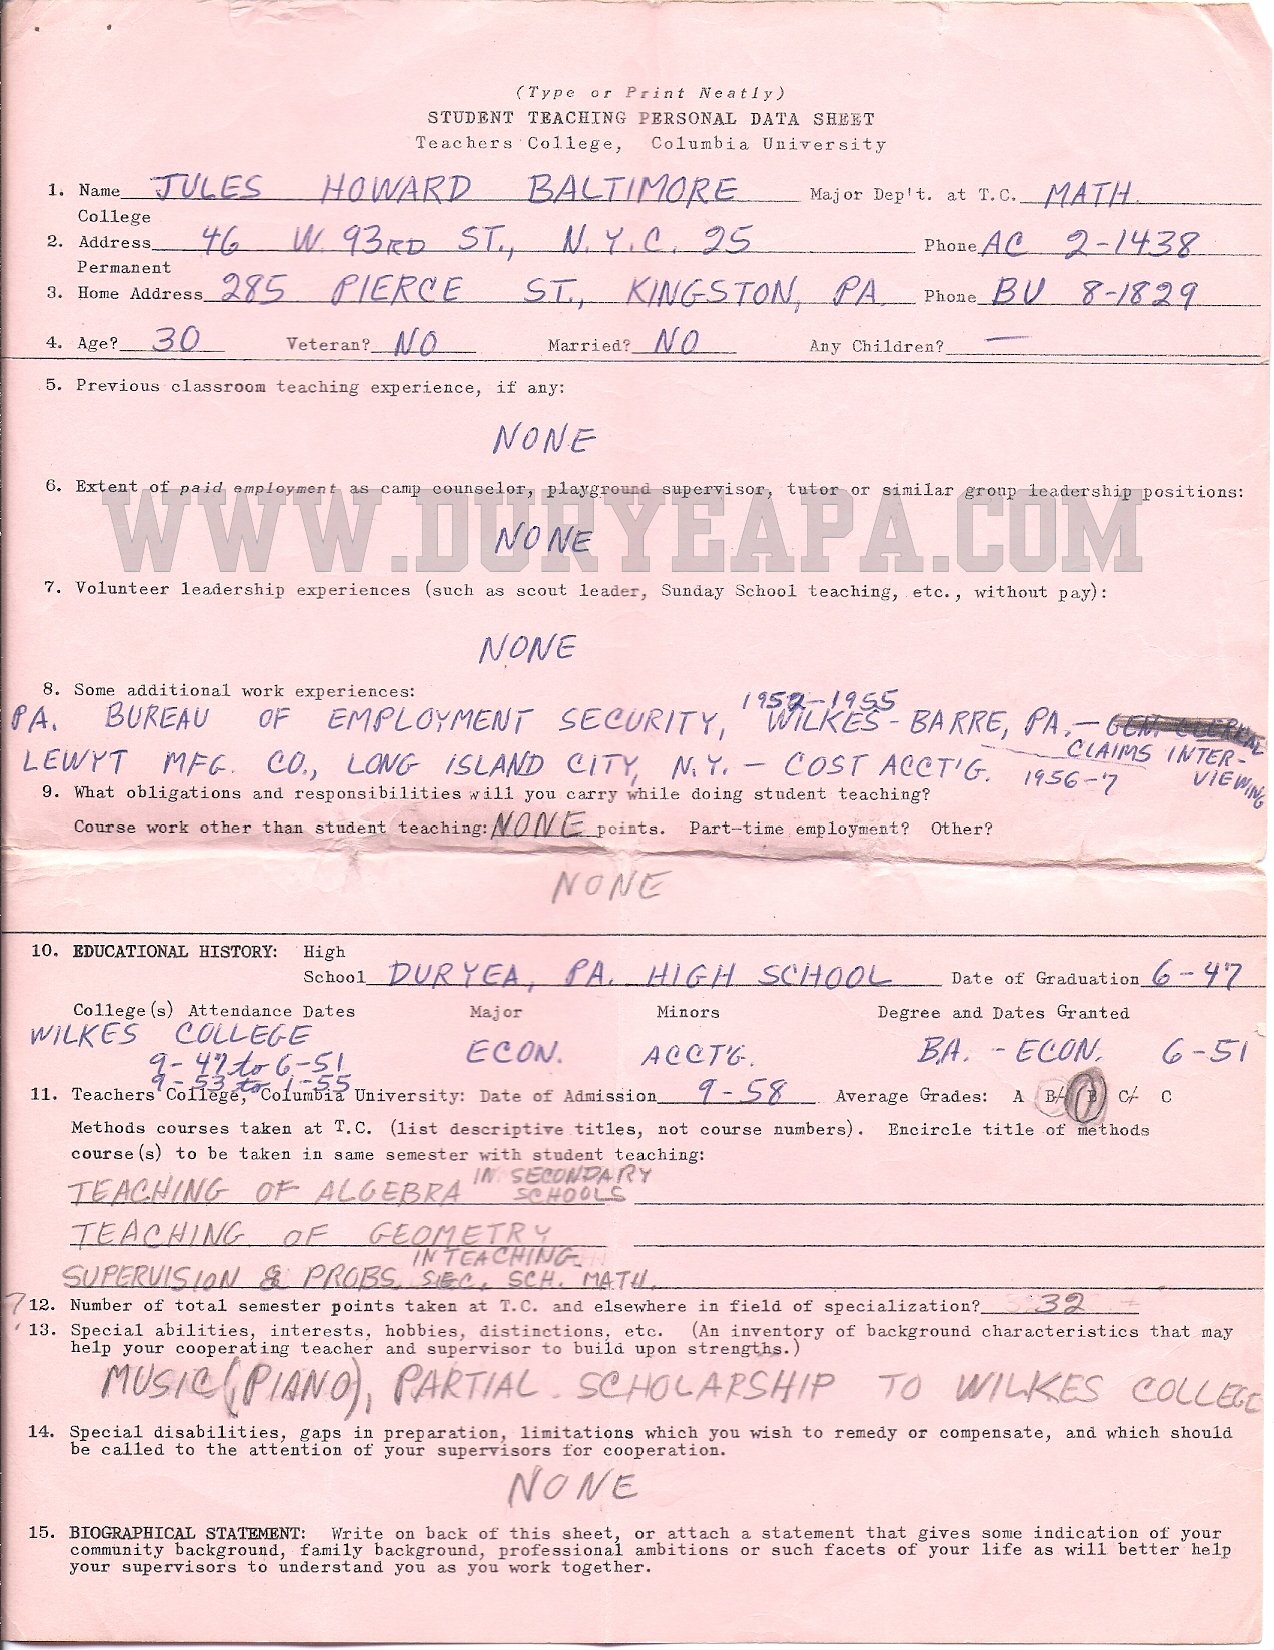 (Type or Print Neatly)
STUDENT TEACHING PERSONAL DATA SHEET
Teachers College, Columbia University
1. Name JULES HOWARD BALTIMORE Major Dep't. at T.C. MATH
College
2. Address 46 W. 93RD ST., N.Y.C. 25 Phone AC 2-1438
Permanent
3. Home Address 285 PIERCE ST., KINGSTON, PA. Phone BU 8-1829
4. Age? 30 Veteran? NO Married? NO Any Children? —
5. Previous classroom teaching experience, if any:
NONE
6. Extent of paid employment as camp counselor, playground supervisor, tutor or similar group leadership positions:
WWW.DURYEAPA.COM
NONE
7. Volunteer leadership experiences (such as scout leader, Sunday School teaching, etc., without pay):
NONE
8. Some additional work experiences:
1952-1955
PA. BUREAU OF EMPLOYMENT SECURITY, WILKES-BARRE, PA. — GEN. CLERICAL
CLAIMS INTER-
VIEWING
LEWYT MFG. CO., LONG ISLAND CITY, N.Y. — COST ACCT'G. 1956-7
9. What obligations and responsibilities will you carry while doing student teaching?
Course work other than student teaching: NONE points. Part-time employment? Other?
NONE
10. EDUCATIONAL HISTORY: High
School DURYEA, PA. HIGH SCHOOL Date of Graduation 6-47
College(s) Attendance Dates Major Minors Degree and Dates Granted
WILKES COLLEGE
9-47 to 6-51 ECON. ACCT'G. B.A. - ECON. 6-51
9-53 to 1-55
11. Teachers College, Columbia University: Date of Admission 9-58 Average Grades: A B+ B C+ C
Methods courses taken at T.C. (list descriptive titles, not course numbers). Encircle title of methods
course(s) to be taken in same semester with student teaching:
TEACHING OF ALGEBRA IN SECONDARY
SCHOOLS
TEACHING OF GEOMETRY
IN TEACHING
SUPERVISION & PROBS. SEC. SCH. MATH.
? 12. Number of total semester points taken at T.C. and elsewhere in field of specialization? 32
13. Special abilities, interests, hobbies, distinctions, etc. (An inventory of background characteristics that may
help your cooperating teacher and supervisor to build upon strengths.)
MUSIC (PIANO), PARTIAL SCHOLARSHIP TO WILKES COLLEGE
14. Special disabilities, gaps in preparation, limitations which you wish to remedy or compensate, and which should
be called to the attention of your supervisors for cooperation.
NONE
15. BIOGRAPHICAL STATEMENT: Write on back of this sheet, or attach a statement that gives some indication of your
community background, family background, professional ambitions or such facets of your life as will better help
your supervisors to understand you as you work together.